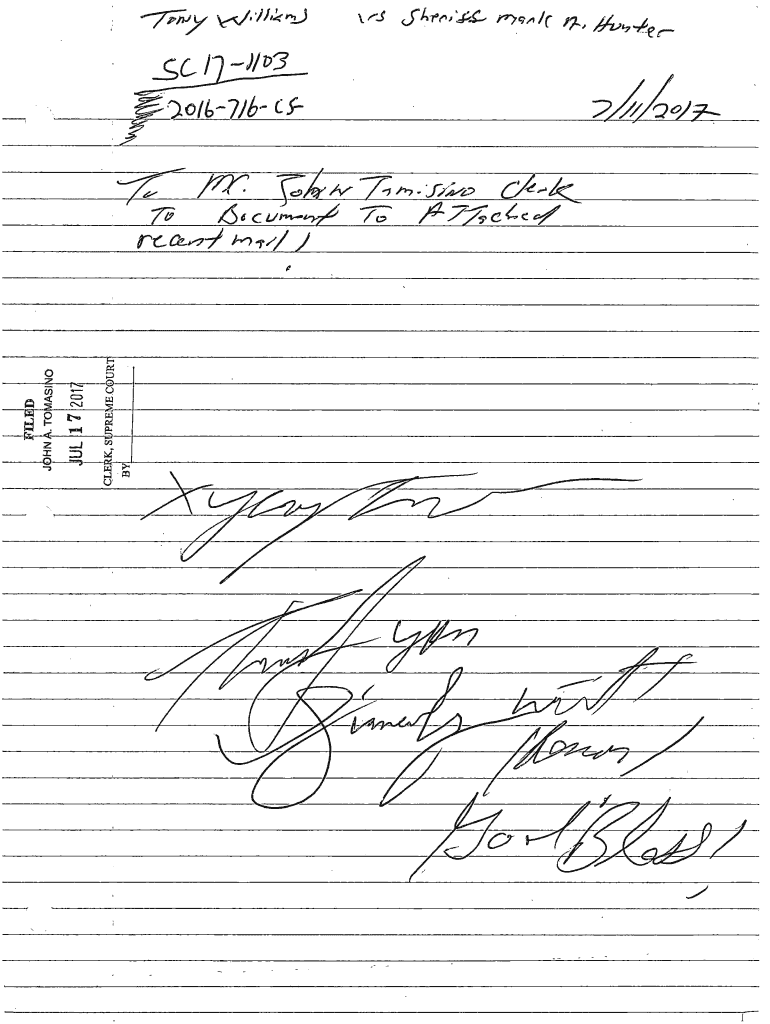 Tony Williams vs Sheriff mark A. Hunter
SC17-1103
2016-716-CF
7/11/2017
To Mr. John Tomisino Clerk
To Document To ATTached
recent mail!
FILED
JOHN A. TOMASINO
JUL 17 2017
CLERK, SUPREME COURT
BY
X
Thank you
Sincerely with
Honor!
God Bless!